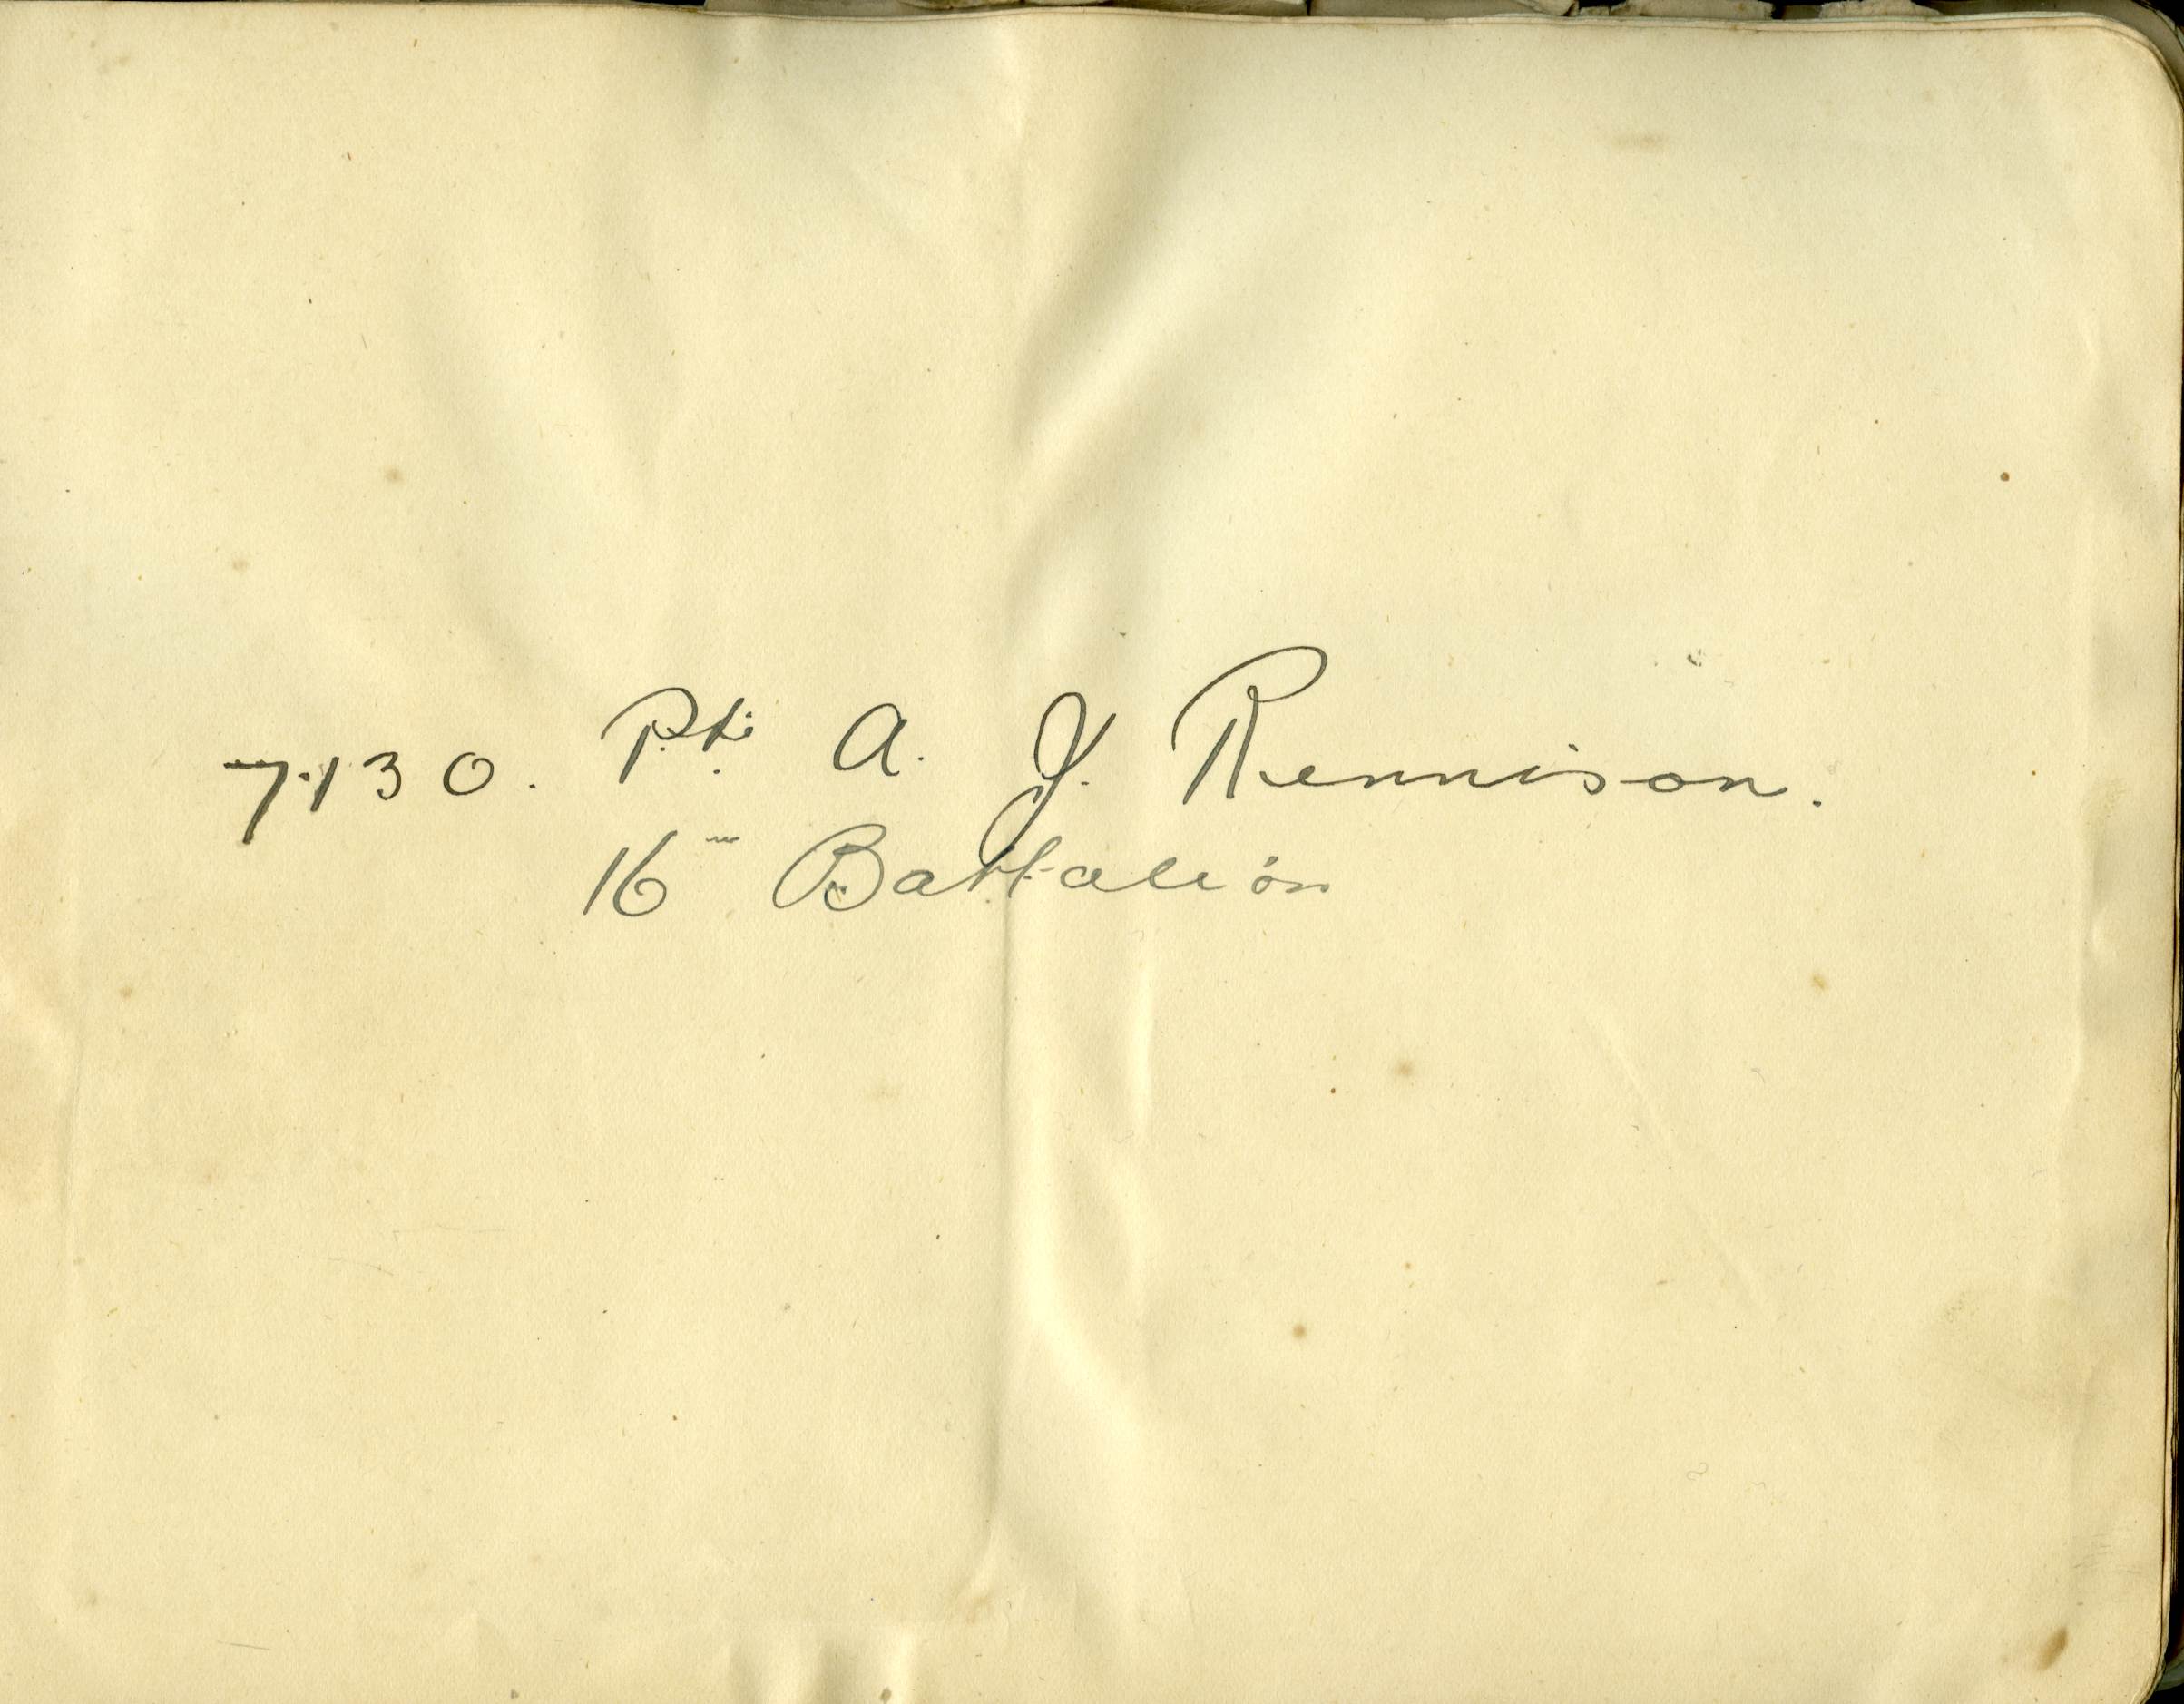 7130. Pte. A. J. Rennison.
16th Battalion